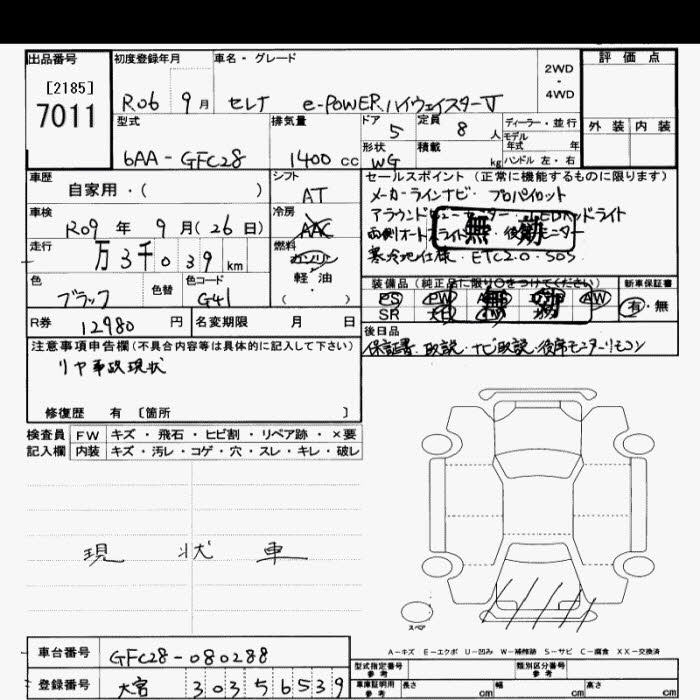 出品番号 初度登録年月 車名・グレード 評価点
[2185]
7011
R06 9月 セレナ e-POWERハイウェイスターV 2WD・4WD
型式 排気量 ドア 定員 ディーラー・並行 外装 内装
6AA-GFC28 1400cc 5 8人 モデル年式 年
形状 積載 kg ハンドル 左・右
WG
車歴 シフト セールスポイント(正常に機能するものに限ります)
自家用・( ) AT メーカーラインナビ・プロパイロット
車検 冷房
R09年 9月(26日) AAC
無効
走行 燃料
万3千039km ガソリン
軽油
( )
寒冷地仕様・ETC2.0・SOS
色 色替 色コード 装備品(純正品に限り○をつけてください) 新車保証書
ブラック G41 PS PW AW 有・無
SR
無効
R券 12980円 名変期限 月 日 後日品
保証書・取説・ナビ取説・後席モニターリモコン
注意事項申告欄(不具合内容等は具体的に記入して下さい)
リヤ事故現状
修復歴 有 〔箇所 〕
検査員 FW キズ・飛石・ヒビ割・リペア跡・×要
記入欄 内装 キズ・汚レ・コゲ・穴・スレ・キレ・破レ
現状車
スペア
A-キズ E-エクボ U-凹み W-補修跡 S-サビ C-腐食 XX-交換済
車台番号 GFC28-080288
型式指定番号 参考 類別区分番号 参考
登録番号 大宮 303 56539
車庫証明用 参考 長さ cm 幅 cm 高さ cm